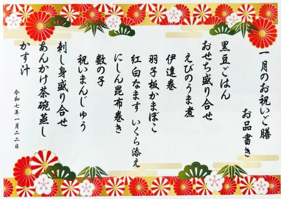 一月のお祝いご膳
お品書き
黒豆ごはん
おせち盛り合せ
えびのうま煮
伊達巻
羽子板かまぼこ
紅白なます いくら添え
にしん昆布巻き
数の子
祝いまんじゅう
刺し身盛り合せ
あんかけ茶碗蒸し
かす汁
令和七年一月二二日